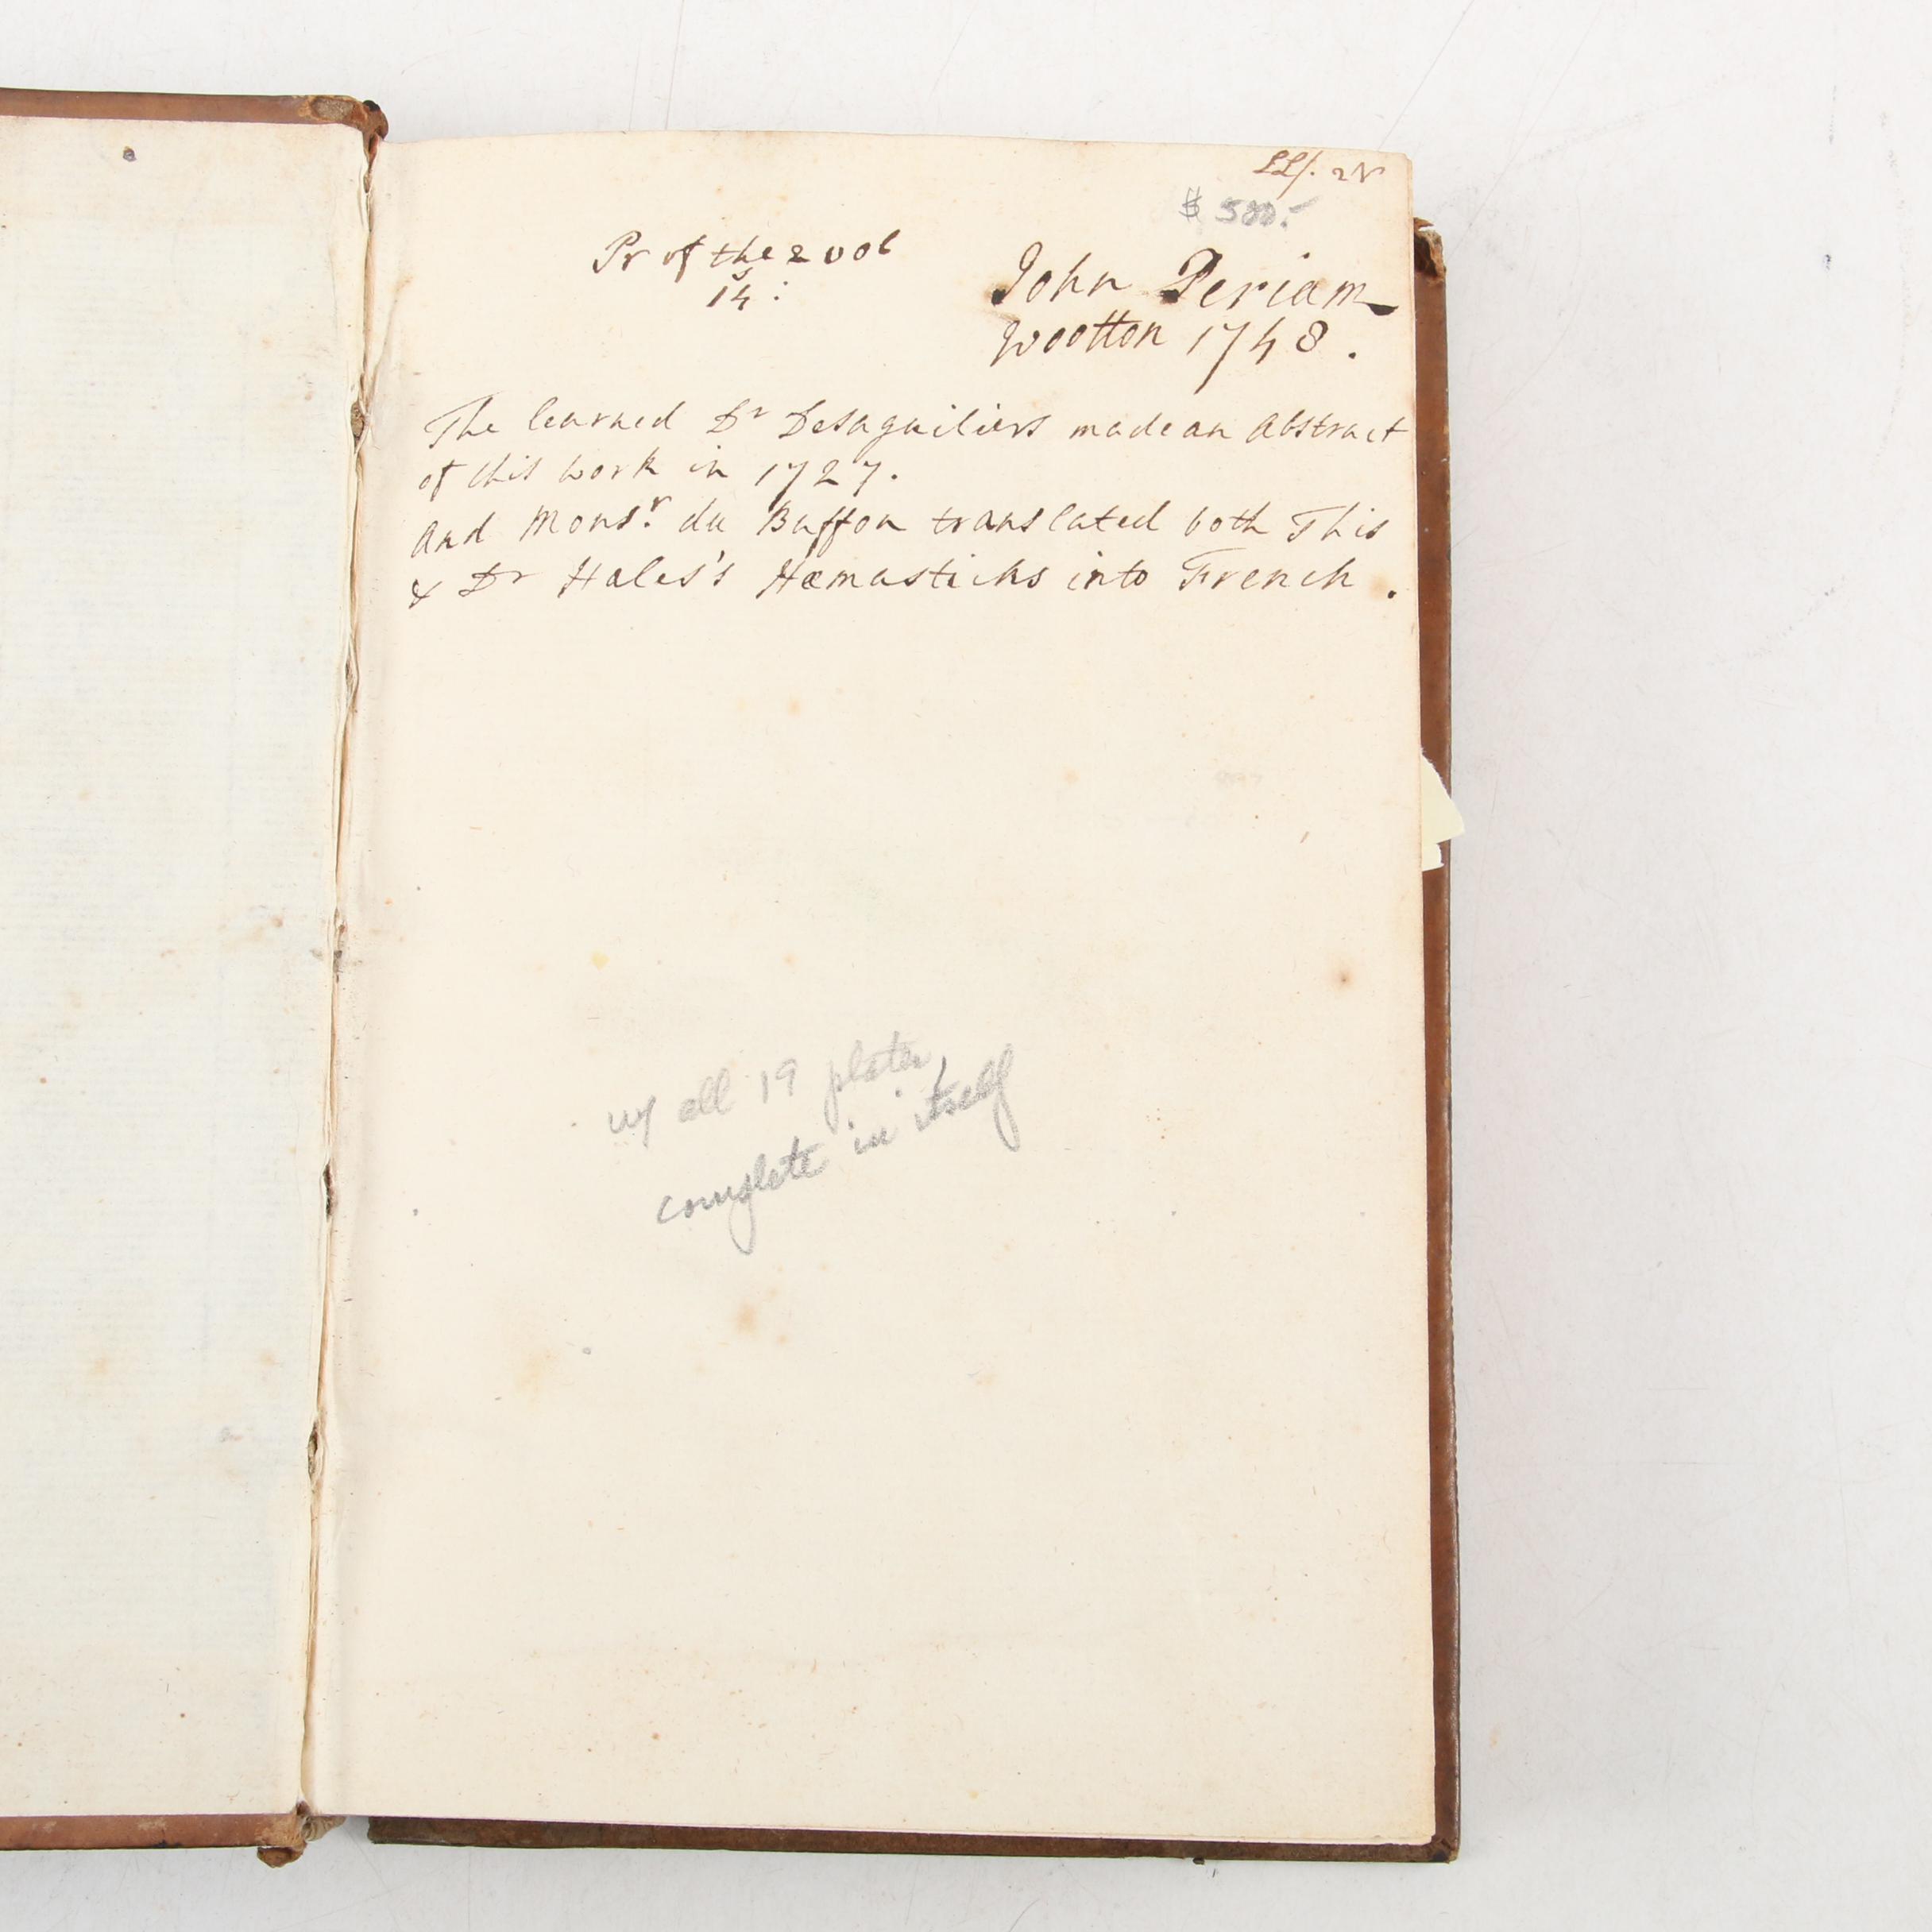 $ 500.-
Pr of the 2 vol
s
14 :
John Periam
Wootton 1748.
The learned Dr Desaguiliers made an Abstract
of this work in 1727.
And Monsr. du Buffon translated both This
& Dr Hales's Hæmasticks into French.
w/ all 19 plates
complete in itself